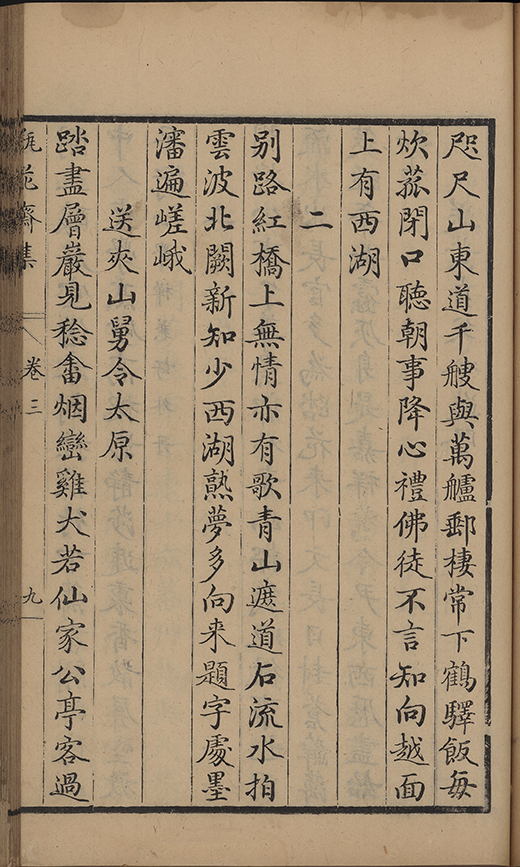 咫尺山東道千艘與萬艫郵棲常下鶴驛飯每
炊菰閉口聽朝事降心禮佛徒不言知向越面
上有西湖
二
别路紅橋上無情亦有歌青山遮道石流水拍
雲波北闕新知少西湖熟夢多向来題字處墨
瀋遍嵯峨
送夾山舅令太原
踏盡層巖見稔畬烟巒雞犬若仙家公亭客過
瓶花齋集
卷三
九